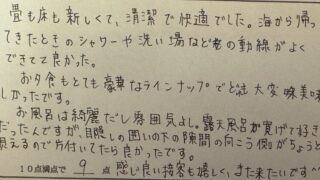 畳も床も新しくて、清潔で快適でした。海から帰っ
てきたときのシャワーや洗い場など色の動線がよく
できてて良かった。
お夕食もとても豪華なラインナップでどれも大変美味
しかったです。
お風呂は綺麗だし雰囲気よし。露天風呂が寛げて好き
だったんですが、目隠しの囲いの下の隙間の向こう側がちょうど
見えるので片付いてたら良かったです。
10点満点で 9 点 感じ良い接客も嬉しく、また来たいです^^